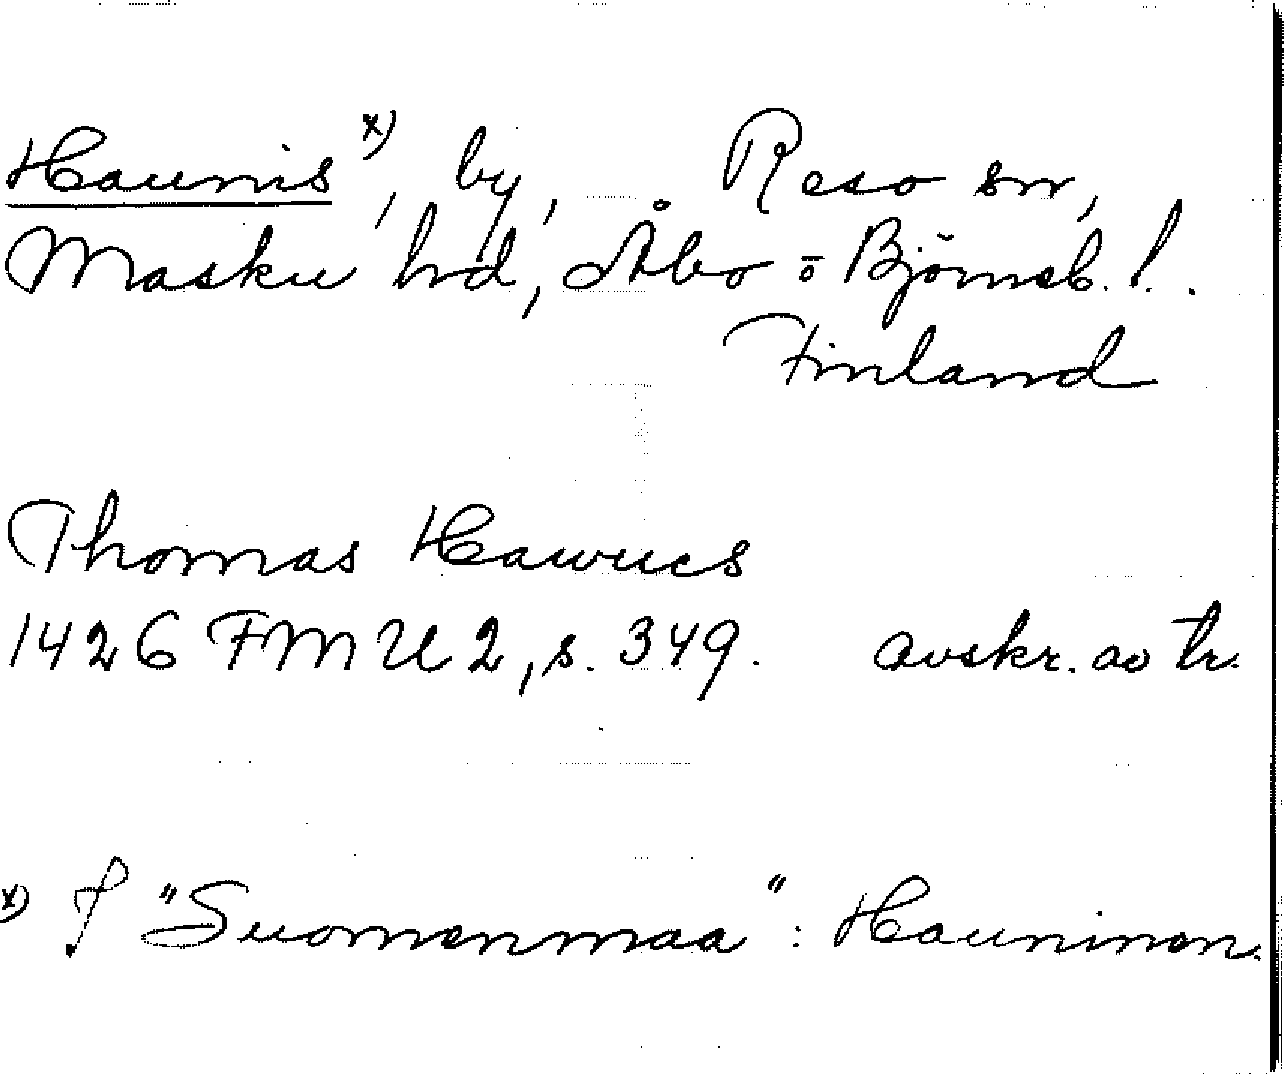 Haunis x), by, Reso sn,
Masku hd, Åbo o Björneb. l.
Finland
Thomas Hawues
1426 FMU 2, s. 349. avskr. av tr.
x) I "Suomenmaa": Hauninen.